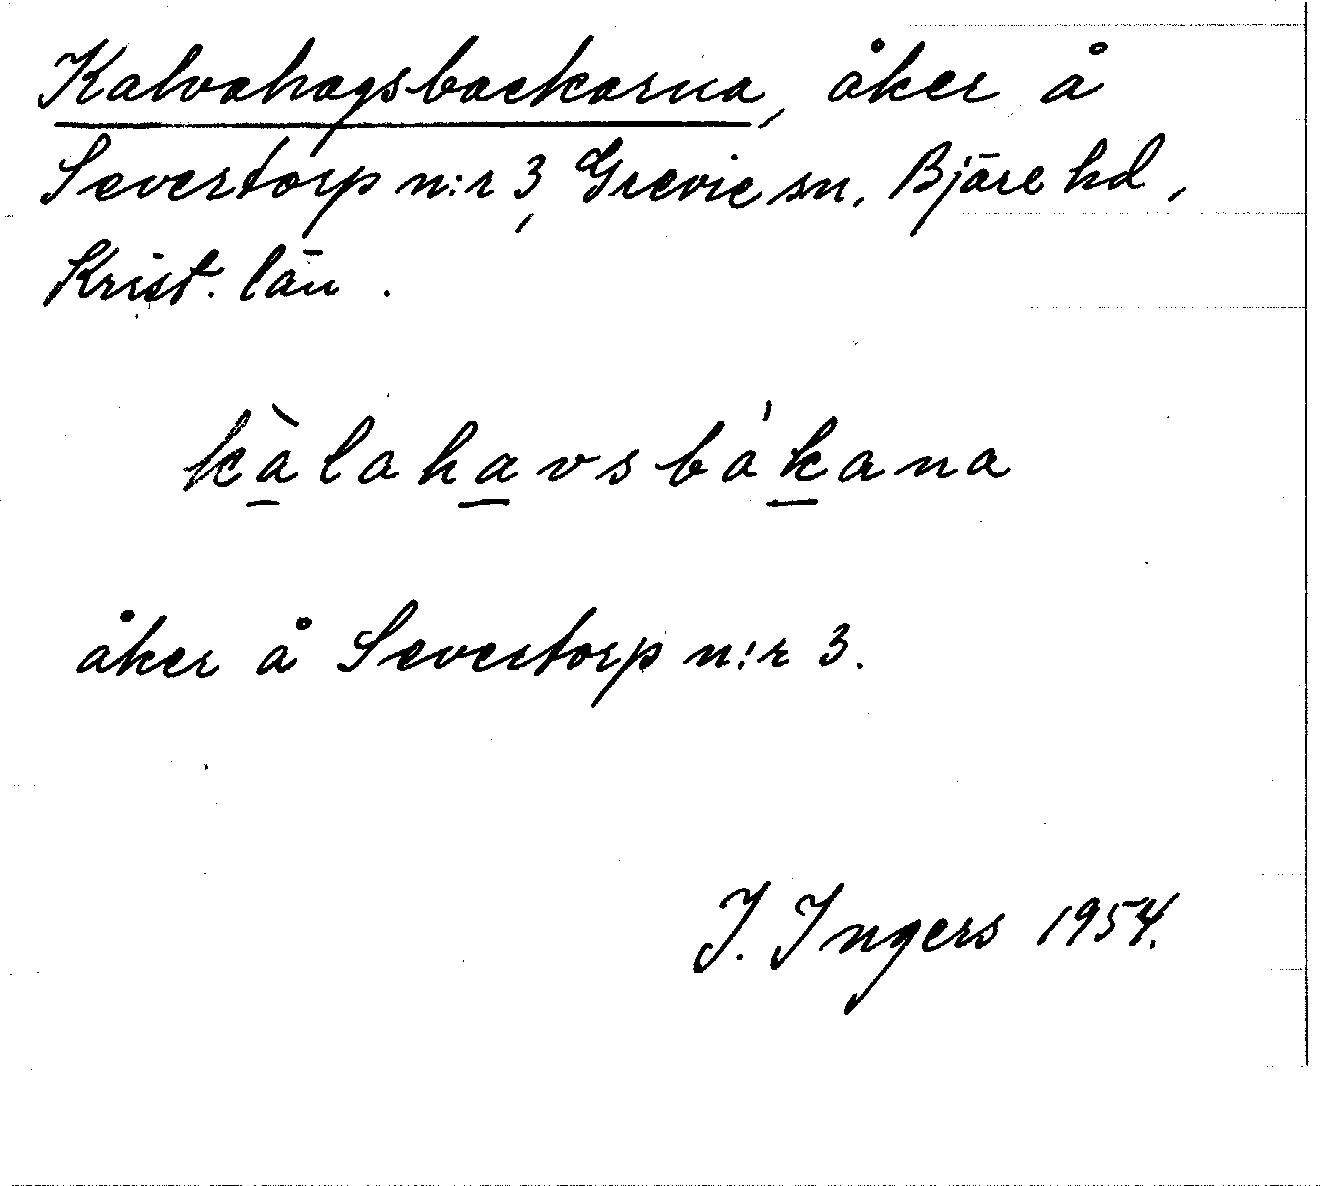 Kalvahagsbackarna, åker å
Severtorp n:r 3, Grevie sn, Bjäre hd,
Krist. län.
kàlahavsbákana
åker å Severtorp n:r 3.
I. Ingers 1954.